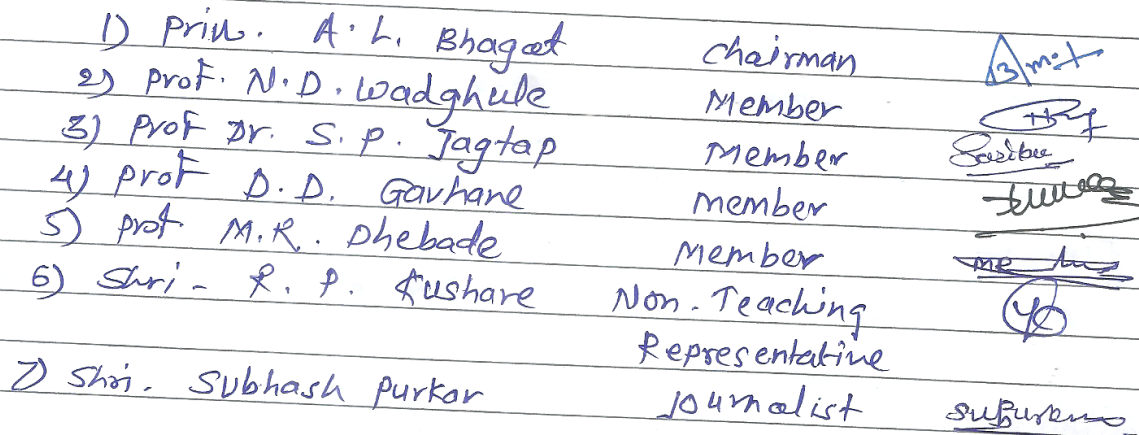 1) Prin. A. L. Bhagat Chairman
2) Prof. N. D. Wadghule Member
3) Prof Dr. S. P. Jagtap Member
4) Prof D. D. Gavhane Member
5) Prof. M. R. Dhebade Member
6) Shri - R. P. Kushare Non-Teaching
Representative
7) Shri. Subhash Purkar Journalist